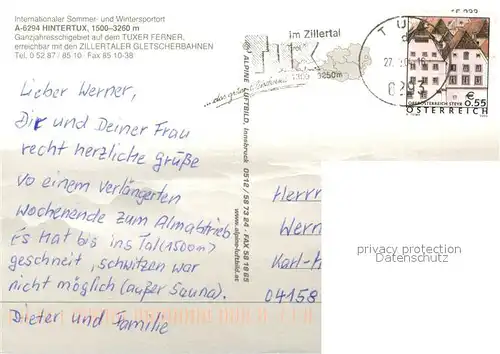 Internationaler Sommer- und Wintersportort
A-6294 HINTERTUX, 1500–3260 m
Ganzjahresschigebiet auf dem TUXER FERNER,
erreichbar mit den ZILLERTALER GLETSCHERBAHNEN
Tel. 0 52 87 / 85 10 Fax 85 10-38
Lieber Werner,
Dir und Deiner Frau
recht herzliche Grüße
vo einem verlängerten
Wochenende zum Almabtrieb
Es Hat bis ins Tal (1500m)
geschneit, schwitzen war
nicht möglich (außer Sauna).
Dieter und Familie
ALPINE LUFTBILD, Innsbruck 0512 / 58 73 84 · FAX 58 18 85
www.alpine-luftbild.at
im Zillertal
TUX
3250m
6293
€ 0,55
OBERÖSTERREICH STEYR
ÖSTERREICH
Herrn
Wern
Karl-
04158
privacy protection
Datenschutz